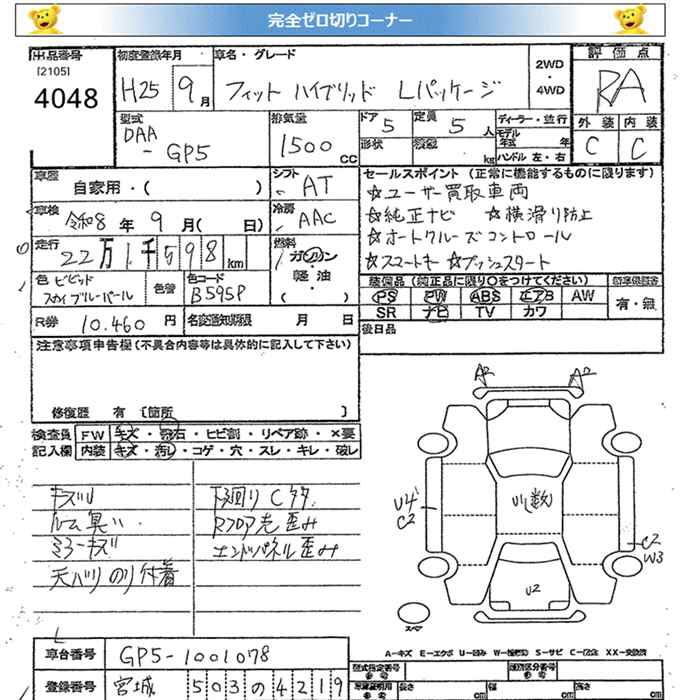 完全ゼロ切りコーナー
出品番号
[2105]
4048
初度登録年月
H25 9月
車名・グレード
フィット ハイブリッド Lパッケージ
2WD
・
4WD
評価点
RA
外装 内装
C C
型式
DAA
-GP5
排気量
1500 cc
ドア 5
定員 5 人
形状
積載 kg
ディーラー・並行
モデル年式 年
ハンドル 左・右
車歴
自家用・( )
シフト
AT
セールスポイント (正常に機能するものに限ります)
☆ユーザー買取車両
☆純正ナビ ☆横滑り防止
☆オートクルーズコントロール
☆スマートキー ☆プッシュスタート
車検
令和8年9月( 日)
冷房
AAC
走行
22万1千598km
燃料
ガソリン
・
軽油
・
( )
色 ビビッド
スカイブルーパール
色替
色コード
B595P
装備品 (純正品に限り○をつけてください)
PS PW ABS エアB AW
SR ナビ TV カワ
有・無
R券 10.460 円
名変通知期限 月 日
後日品
注意事項申告欄(不具合内容等は具体的に記入して下さい)
修復歴 有 [箇所 ]
検査員
記入欄
FW キズ・飛石・ヒビ割・リペア跡・×要
内装 キズ・汚し・コゲ・穴・スレ・キレ・破レ
キズU
ルーム臭い
ミラーキズ
天バリのり付着
下廻りCタタ
Rフロア先歪み
エンドパネル歪み
A2 A2
U4
C2
小(数)
C2
W3
U2
スペア
A-キズ E-エクボ U-凹み W-補修跡 S-サビ C-腐食 XX-交換済
車台番号
GP5-1001078
型式指定番号
参考
類別区分番号
参考
登録番号
宮城 503 の 4219
長さ cm
幅 cm
高さ cm